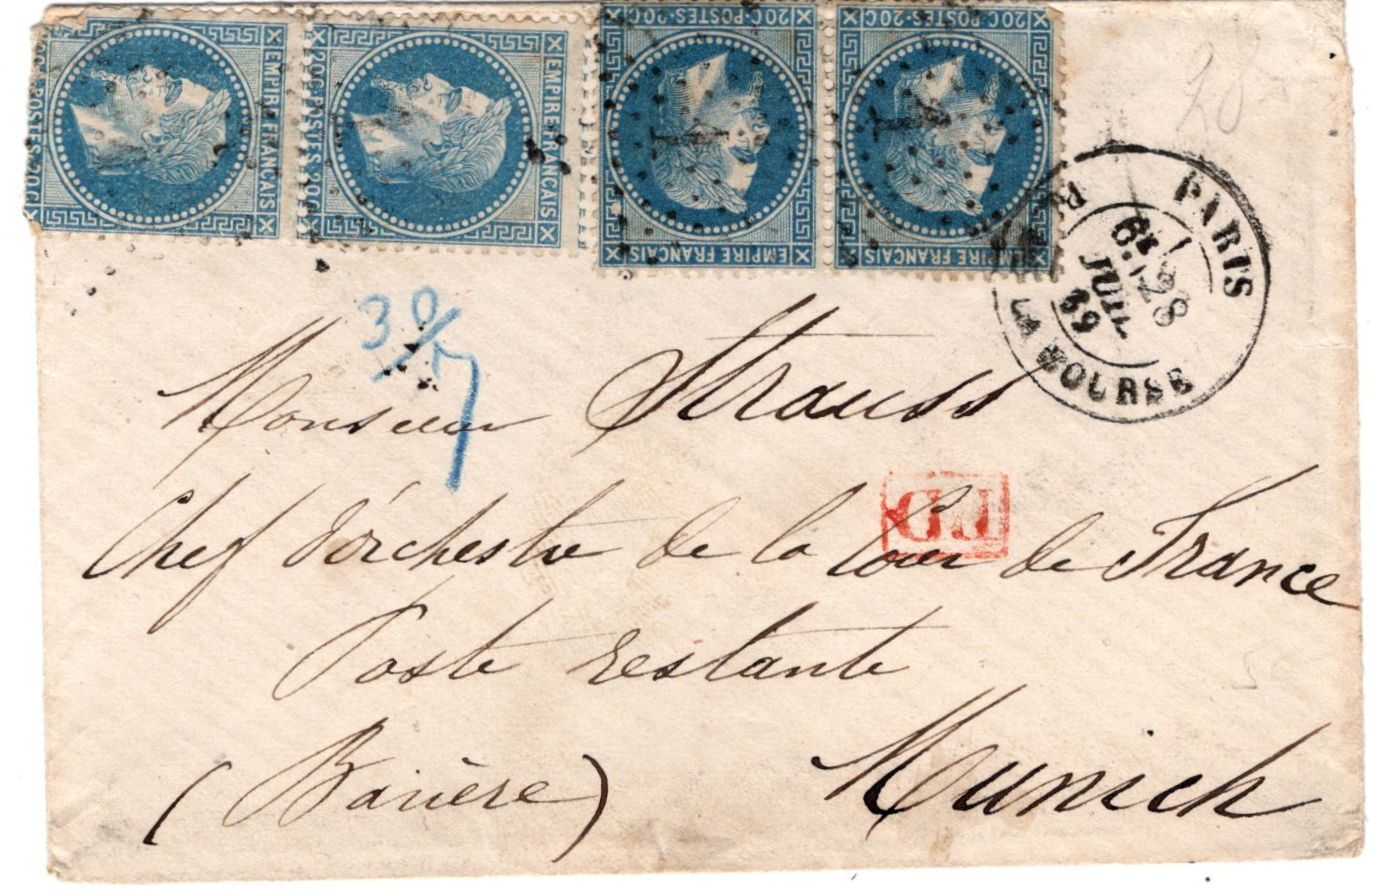 POSTES · 20 C
EMPIRE FRANÇAIS
20 C · POSTES · 20 C
EMPIRE FRANÇAIS
20C · POSTES · 20C
EMPIRE FRANÇAIS
20C · POSTES · 20C
EMPIRE FRANÇAIS
1
1
28
PARIS
28
JUIL
69
LA BOURSE
Monsieur Strauss
PD
Chef d'orchestre de la Cour de France
Poste restante
(Bavière) Munich